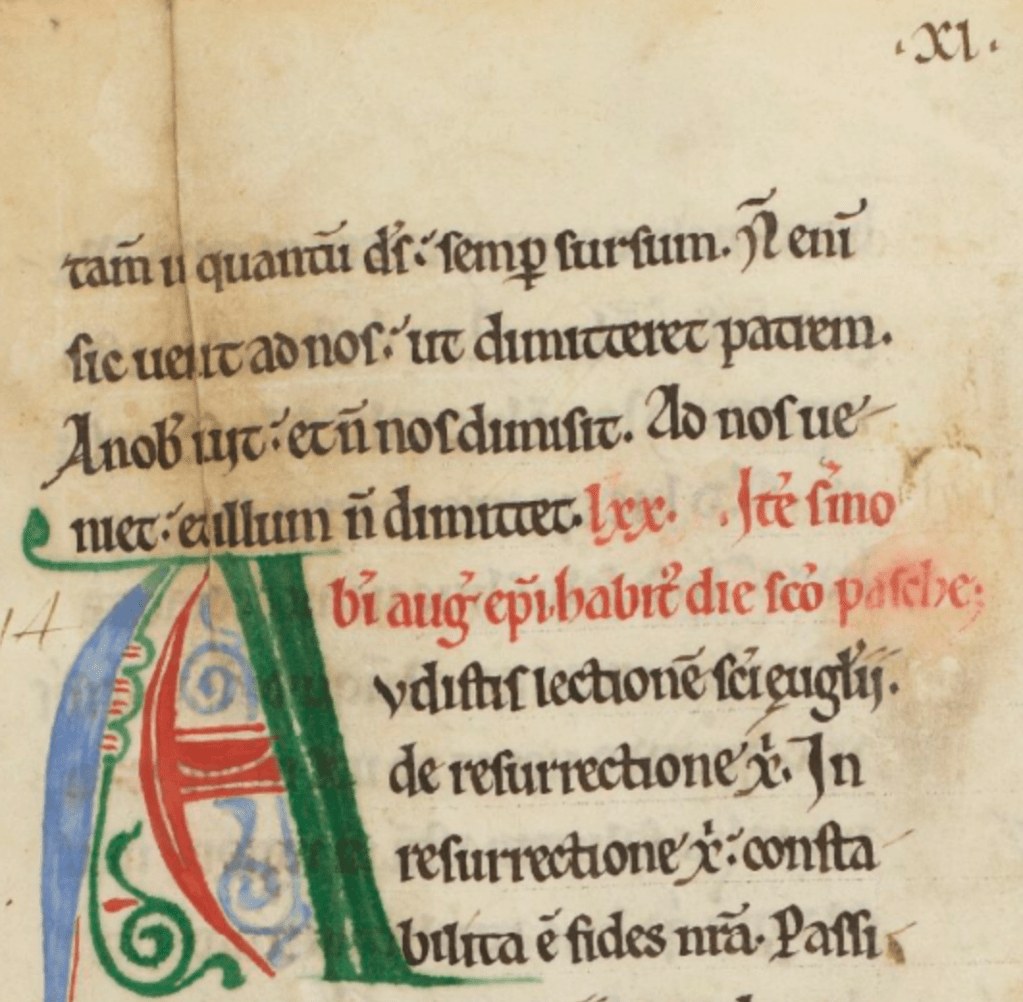 ·XI·
tam̄ u quantū d͛s ؛ semꝑ sursum. N̄ enī
sic uenit ad nos ؛ ut dimitteret patrem.
A nob̄ iuit ؛ et n̄ nos dimisit. Ad nos ue-
niet ؛ et illum n̄ dimittet. lxx. .Itē s̄mo
bī auḡ ep̄i habit᷒ die scō pasche;
14
vdistis lectionē sc̄i ęuglīi.
de resurrectione x̄i. In
resurrectione x̄i ؛ consta
bilita ē fides nr̄a. Passi